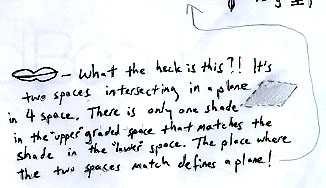 – What the heck is this?!! It's
two spaces intersecting in a plane
in 4 space. There is only one shade
in the "upper" graded space that matches the
shade in the "lower" space. The place where
the two spaces match defines a plane!